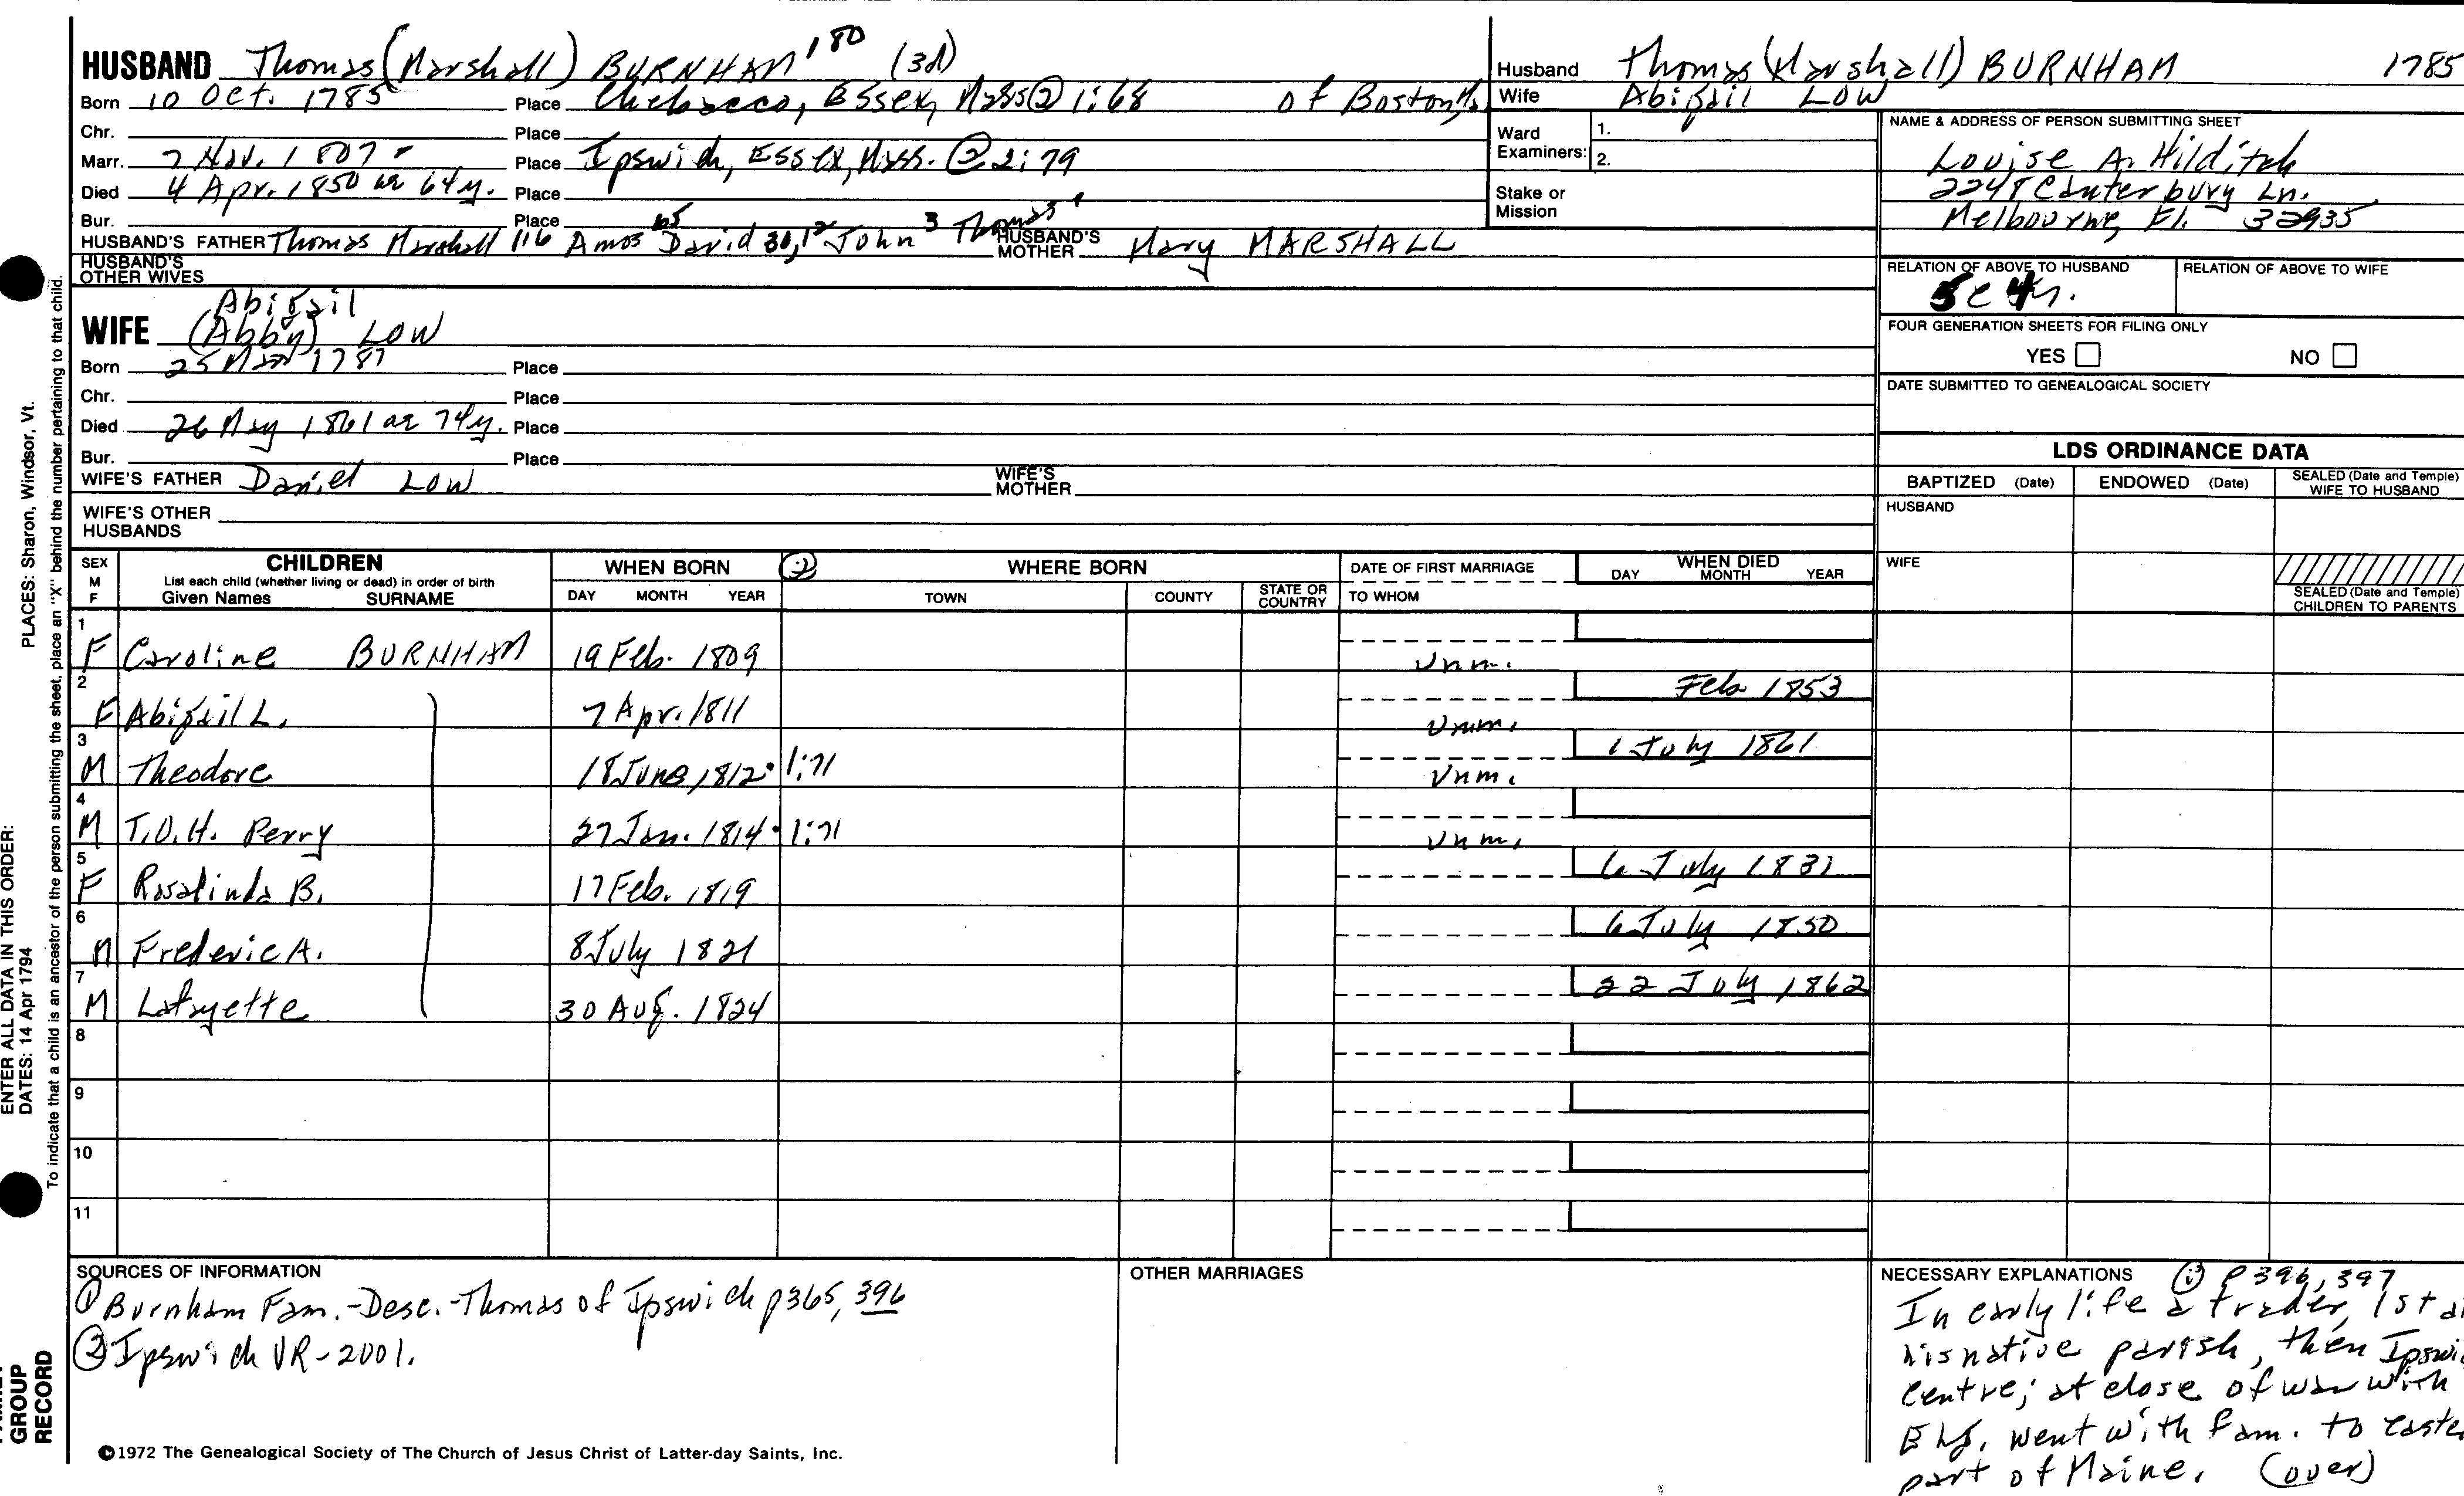 HUSBAND Thomas (Marshall) BURNHAM 180 (3d)
Born 10 Oct. 1785 Place Chebacco, Essex, Mass ② 1:68 of Boston, Ms
Chr. Place
Marr. 7 Nov. 1807 Place Ipswich, Essex, Mass. ② 2:79
Died 4 Apr. 1850 ae 64y. Place
Bur. Place
HUSBAND'S FATHER Thomas Marshall 116 Amos 65 David 30, 12 John 3 Thomas 1 HUSBAND'S MOTHER Mary MARSHALL
HUSBAND'S OTHER WIVES
Abigail
WIFE (Abby) LOW
Born 25 Mar 1787 Place
Chr. Place
Died 26 May 1861 ae 74y. Place
Bur. Place
WIFE'S FATHER Daniel LOW WIFE'S MOTHER
WIFE'S OTHER HUSBANDS
Husband Thomas (Marshall) BURNHAM 1785
Wife Abigail LOW
Ward Examiners: 1.
2.
Stake or Mission
NAME & ADDRESS OF PERSON SUBMITTING SHEET
Louise A. Hilditch
Canterbury Ln.
Melbourne, Fl. 32935
RELATION OF ABOVE TO HUSBAND RELATION OF ABOVE TO WIFE
FOUR GENERATION SHEETS FOR FILING ONLY
YES NO
DATE SUBMITTED TO GENEALOGICAL SOCIETY
LDS ORDINANCE DATA
BAPTIZED (Date) ENDOWED (Date) SEALED (Date and Temple) WIFE TO HUSBAND
HUSBAND
WIFE
SEALED (Date and Temple) CHILDREN TO PARENTS
SEX M F CHILDREN WHEN BORN ② WHERE BORN DATE OF FIRST MARRIAGE WHEN DIED
List each child (whether living or dead) in order of birth
Given Names SURNAME DAY MONTH YEAR TOWN COUNTY STATE OR COUNTRY TO WHOM DAY MONTH YEAR
1 F Caroline BURNHAM 19 Feb. 1809 Unm.
2 F Abigail L. 7 Apr. 1811 Unm. Feb 1853
3 M Theodore 18 June, 1812 1:71 Unm. 1 July 1861
4 M T.O.H. Perry 27 Jan. 1814 1:71 Unm.
5 F Rosalinda B. 17 Feb. 1819 6 July 1831
6 M Frederic A. 8 July 1821 6 July 1850
7 M Lafayette 30 Aug. 1824 22 July 1862
8
9
10
11
SOURCES OF INFORMATION
① Burnham Fam.-Desc.-Thomas of Ipswich p365, 396
② Ipswich VR-2001.
OTHER MARRIAGES
NECESSARY EXPLANATIONS ① P 396, 397
In early life a trader, 1st
his native parish, then Ipswi
Centre; at close of war with
Eng. went with fam. to easte
part of Maine. (over)
©1972 The Genealogical Society of The Church of Jesus Christ of Latter-day Saints, Inc.
GROUP
RECORD
ENTER ALL DATA IN THIS ORDER:
DATES: 14 Apr 1794
PLACES: Sharon, Windsor, Vt.
To indicate that a child is an ancestor of the person submitting the sheet, place an "X" behind the number pertaining to that child.